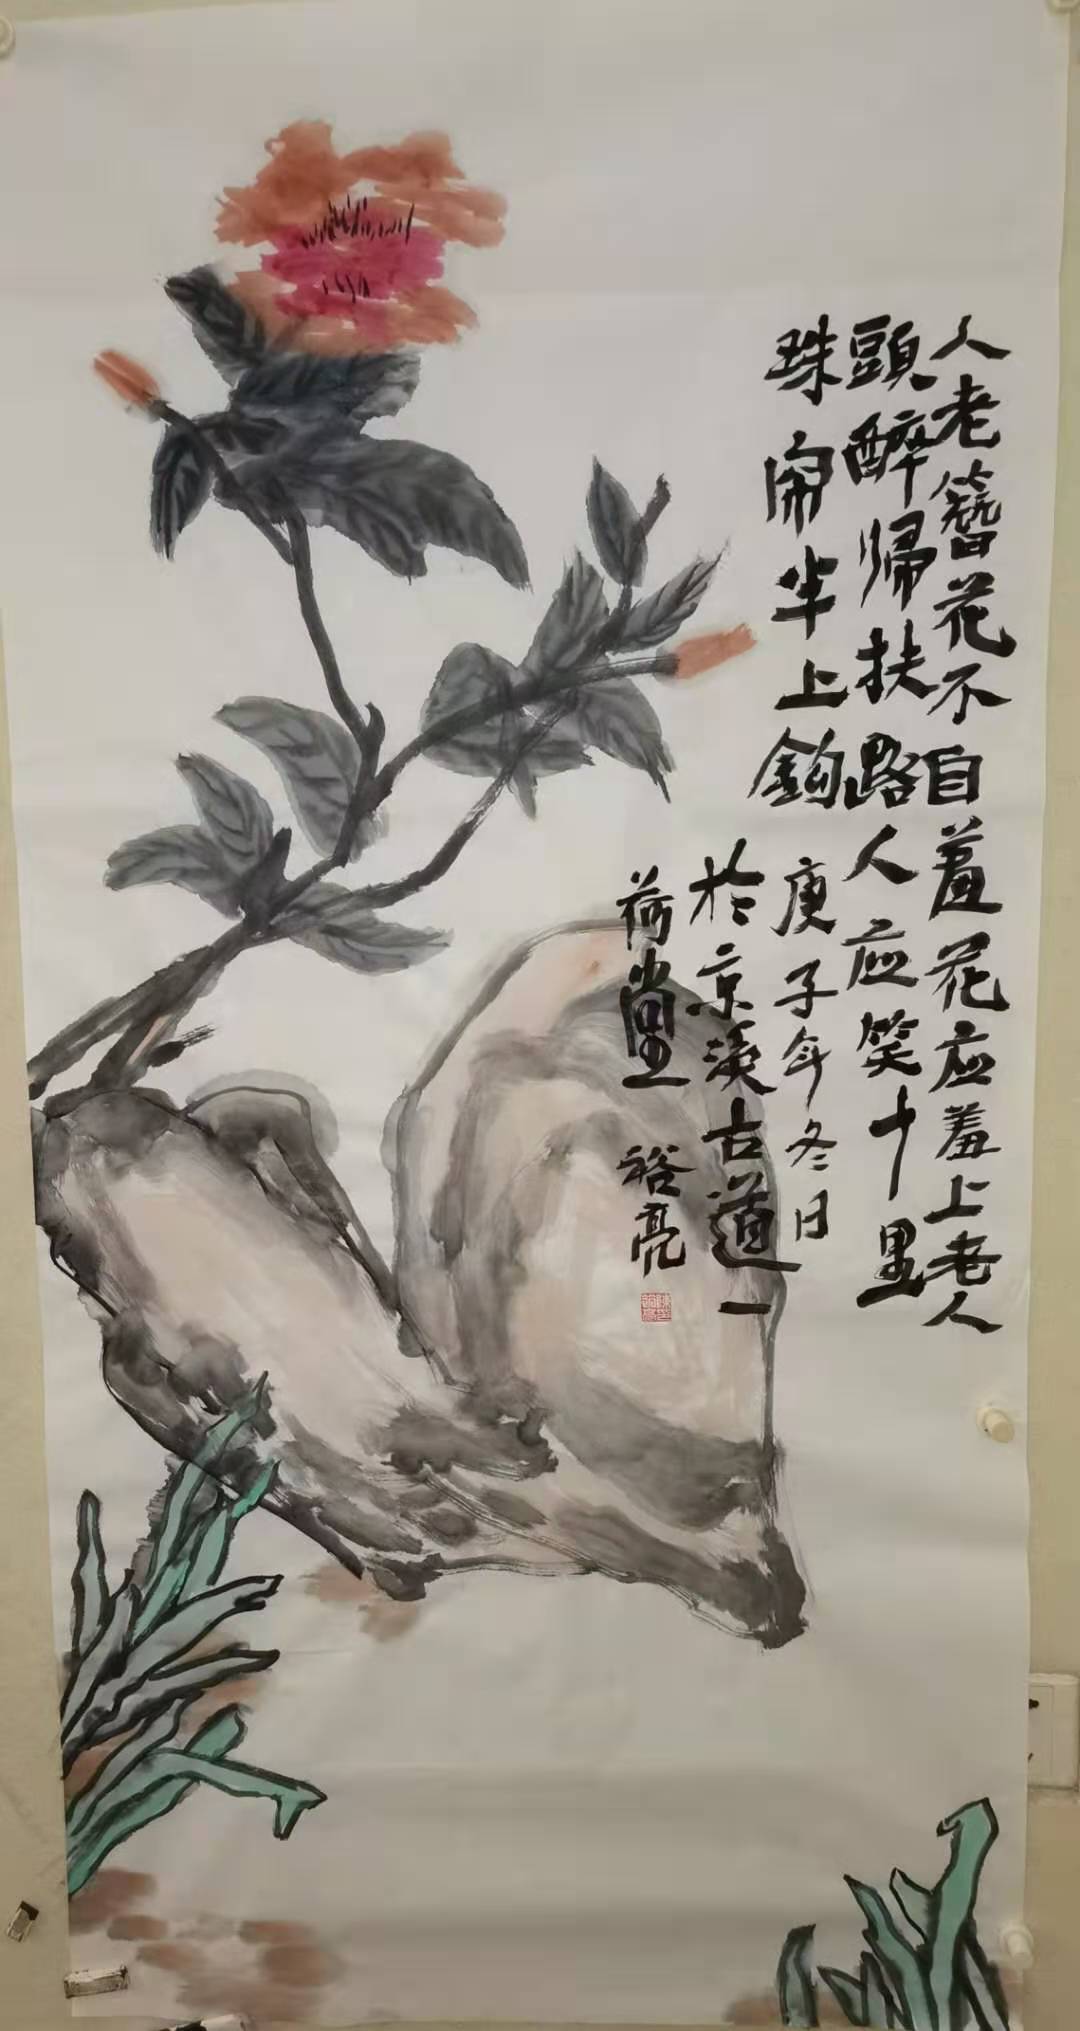 人老簪花不自羞花应羞上老人
頭醉帰扶路人应笑十里
珠帘半上鈎
庚子年冬日
於京溪古道一
荷堂 裕亮